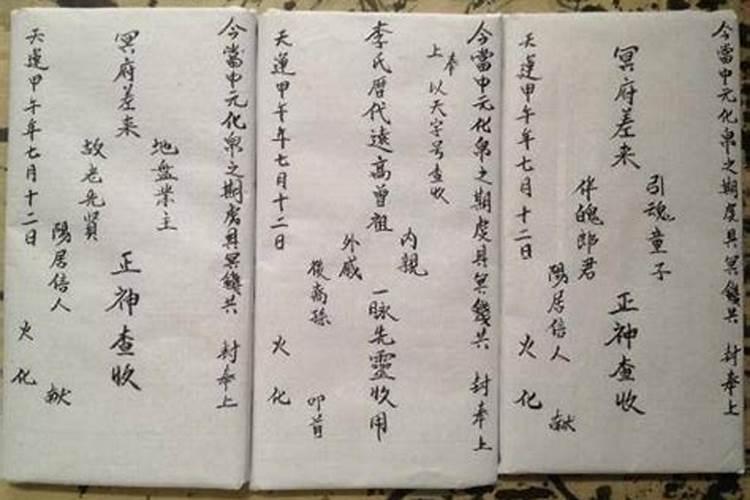 今當中元化帛之期虔具冥錢共 封奉上
冥府差来
引魂童子
伴魄郎君
正神查收
陽居信人 献
天運甲午年七月十二日 火化
今當中元化帛之期虔具冥錢共 封奉上
奉上 以天字号查收
李氏暦代遠高曾祖
内親
外戚
一脉先靈收用
後裔孫 叩首
天運甲午年七月十二日 火化
今當中元化帛之期虔具冥錢共 封奉上
冥府差来
地盘業主
故老先賢
正神查收
陽居信人 献
天運甲午年七月十二日 火化